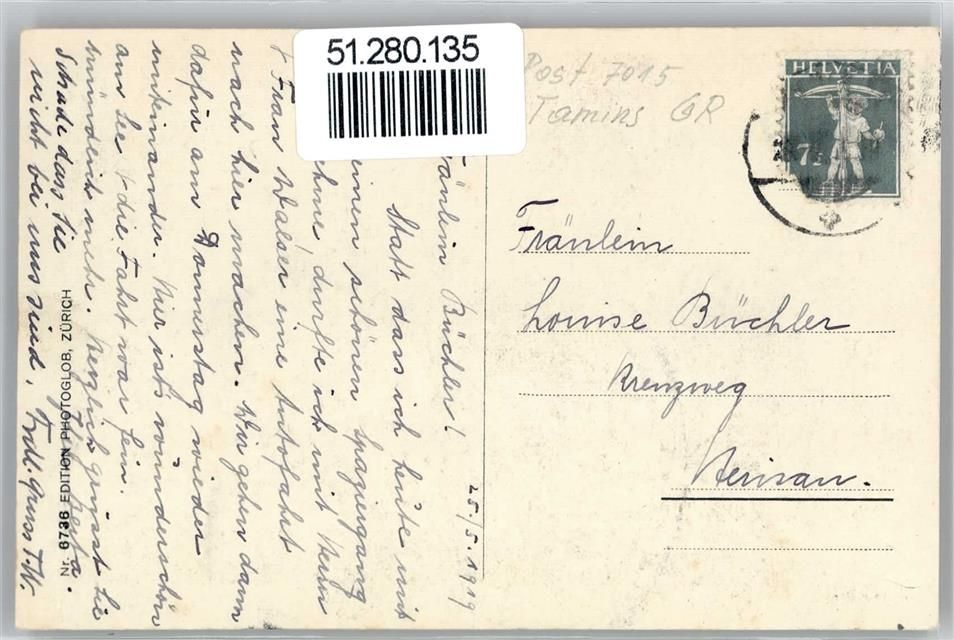 51.280.135
Post 7015
Tamins GR
HELVETIA
7½
Fräulein
Louise Büchler
Kreuzweg
Herisau.
25./5. 1919
Fräulein Büchler!
Statt dass ich heute mit
Ihnen schönen Spaziergang
nehme, durfte ich mit Herrn
& Frau Walser eine Autofahrt
nach hier machen. Wir gehen dann
dafür am Donnerstag wieder
miteinander. Hier ists wunderschön
am See & die Fahrt war fein.
mündlich mehr. Herzlich grüsst Sie
Schade dass Sie
nicht bei uns sind. Frdl. Gruss T.W.
Nr. 6736 EDITION PHOTOGLOB, ZÜRICH